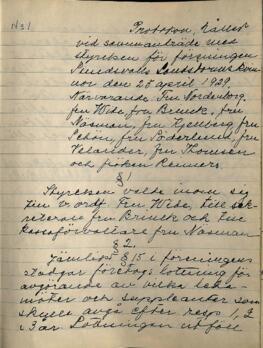 No 1
Protokoll, hållet
vid sammanträde med
styrelsen för föreningen
Sundsvalls
den 28 april 1929.
Närvarande: Fru Nordenborg,
fru Wide, fru Brinck, fru
Näsman, fru Kjellberg, fru
Schön, fru Söderlund, fru
Velander, fru Thomsen
och fröken Renners.
§ 1
Styrelsen valde inom sig
till v. ordf. Fru Wide, till sek-
reterare fru Brinck och till
kassaförvaltare fru Näsman
§ 2.
Jämlikt § 15 i föreningens
stadgar företogs lottning för
avgörande av vilka leda-
möter och suppleanter som
skulle avgå efter resp 1, 2
o 3 år Lottningen utföll